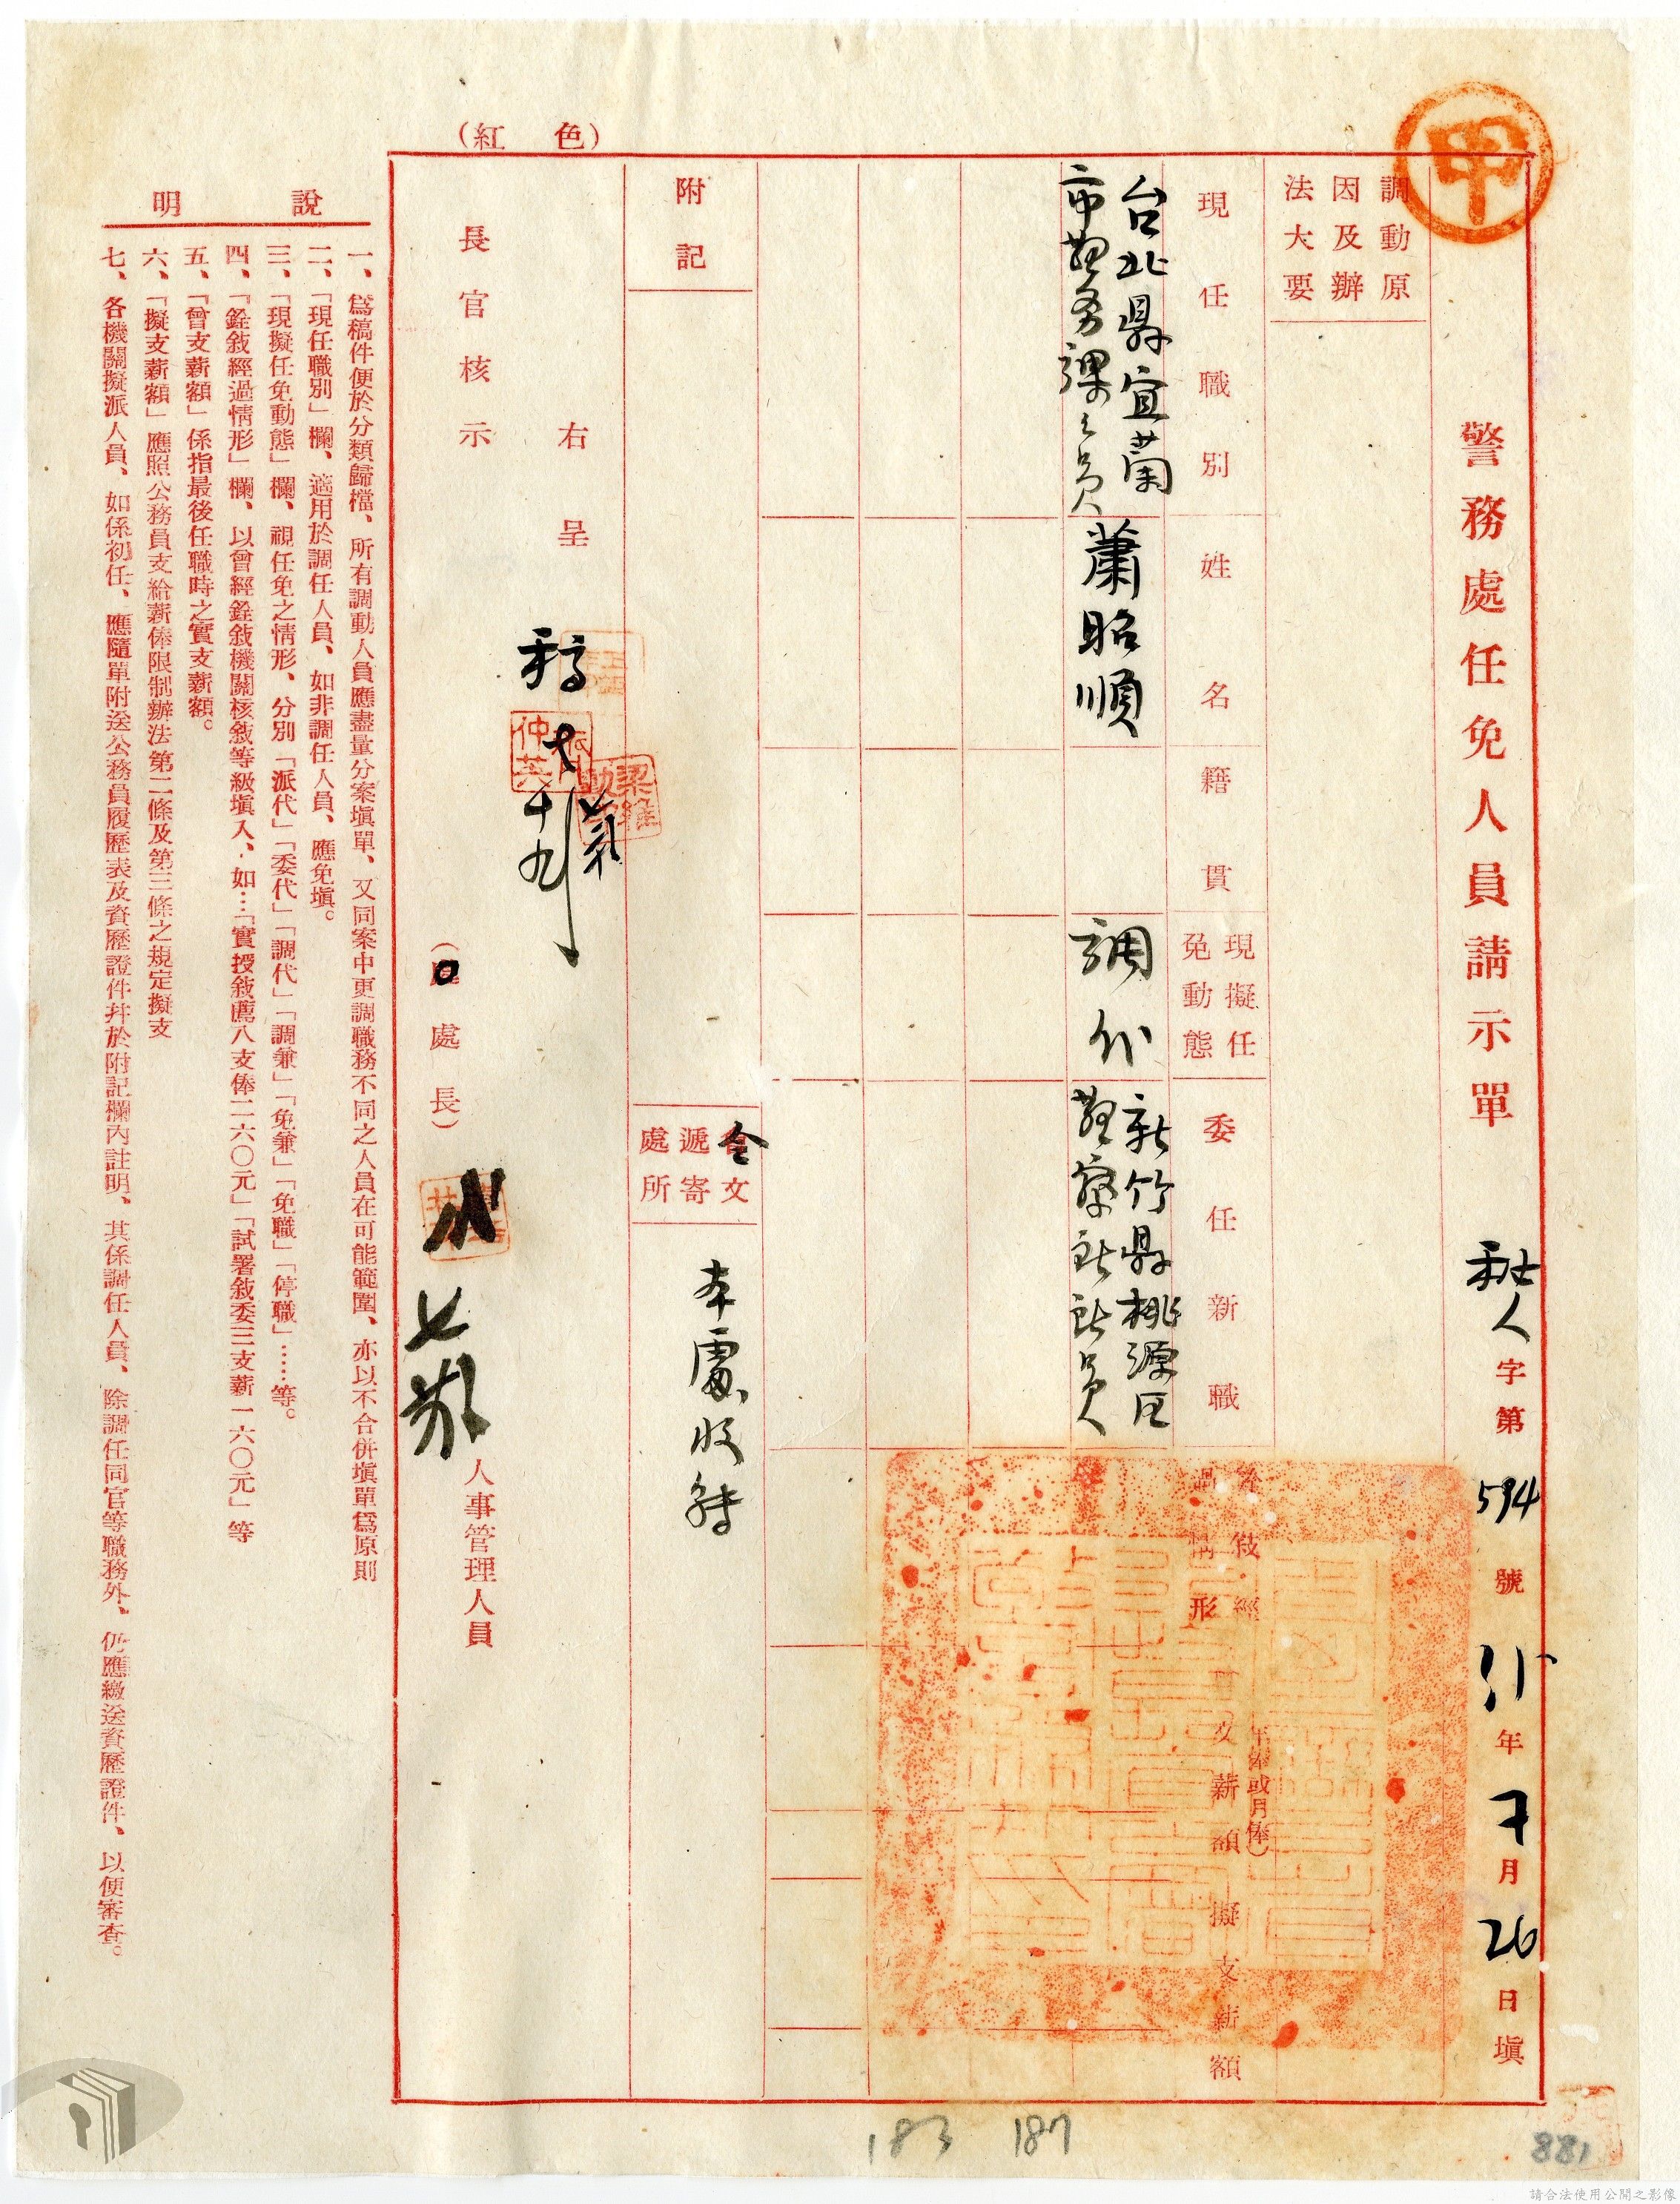 甲
警務處任免人員請示單
秘人字第594號 年 月26日填
調動原
因及辦
法大要
現任職別
姓名
籍貫
現擬任
免動態
委任新職
銓敍經
過情形
支薪額
(年俸或月俸)
擬支薪額
台北縣宜蘭
市警務課課員
蕭昭順
調代
新竹縣桃源区
警察所所員
附記
令文
遞寄
處所
本處收轉
右呈
核
仲英
梁維
長官核示
(處長)
人事管理人員
(紅色)
說明
一、爲稿件便於分類歸檔、所有調動人員應盡量分案塡單、又同案中更調職務不同之人員在可能範圍、亦以不合併塡單爲原則
二、「現任職別」欄、適用於調任人員、如非調任人員、應免塡。
三、「現擬任免動態」欄、視任免之情形、分別「派代」「委代」「調代」「調兼」「免兼」「免職」「停職」……等。
四、「銓敍經過情形」欄、以曾經銓敍機關核敍等級塡入、如…「實授敍薦八支俸二六〇元」「試署敍委三支薪一六〇元」等
五、「曾支薪額」係指最後任職時之實支薪額。
六、「擬支薪額」應照公務員支給薪俸限制辦法第二條及第三條之規定擬支
七、各機關擬派人員、如係初任、應隨單附送公務員履歷表及資歷證件幷於附記欄內註明、其係調任人員、除調任同官等職務外、仍應繳送資歷證件、以便審查。
183 187
881
請合法使用公開之影像